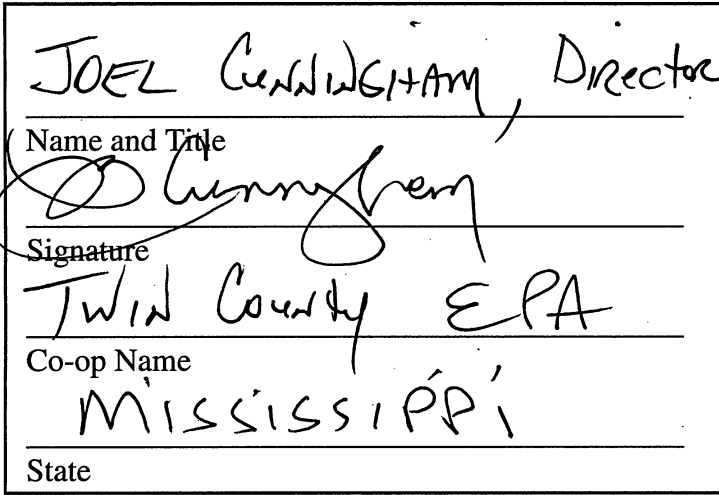 JOEL CUNNINGHAM, DIRECTOR
Name and Title
J Cunningham
Signature
TWIN COUNTY EPA
Co-op Name
MISSISSIPPI
State